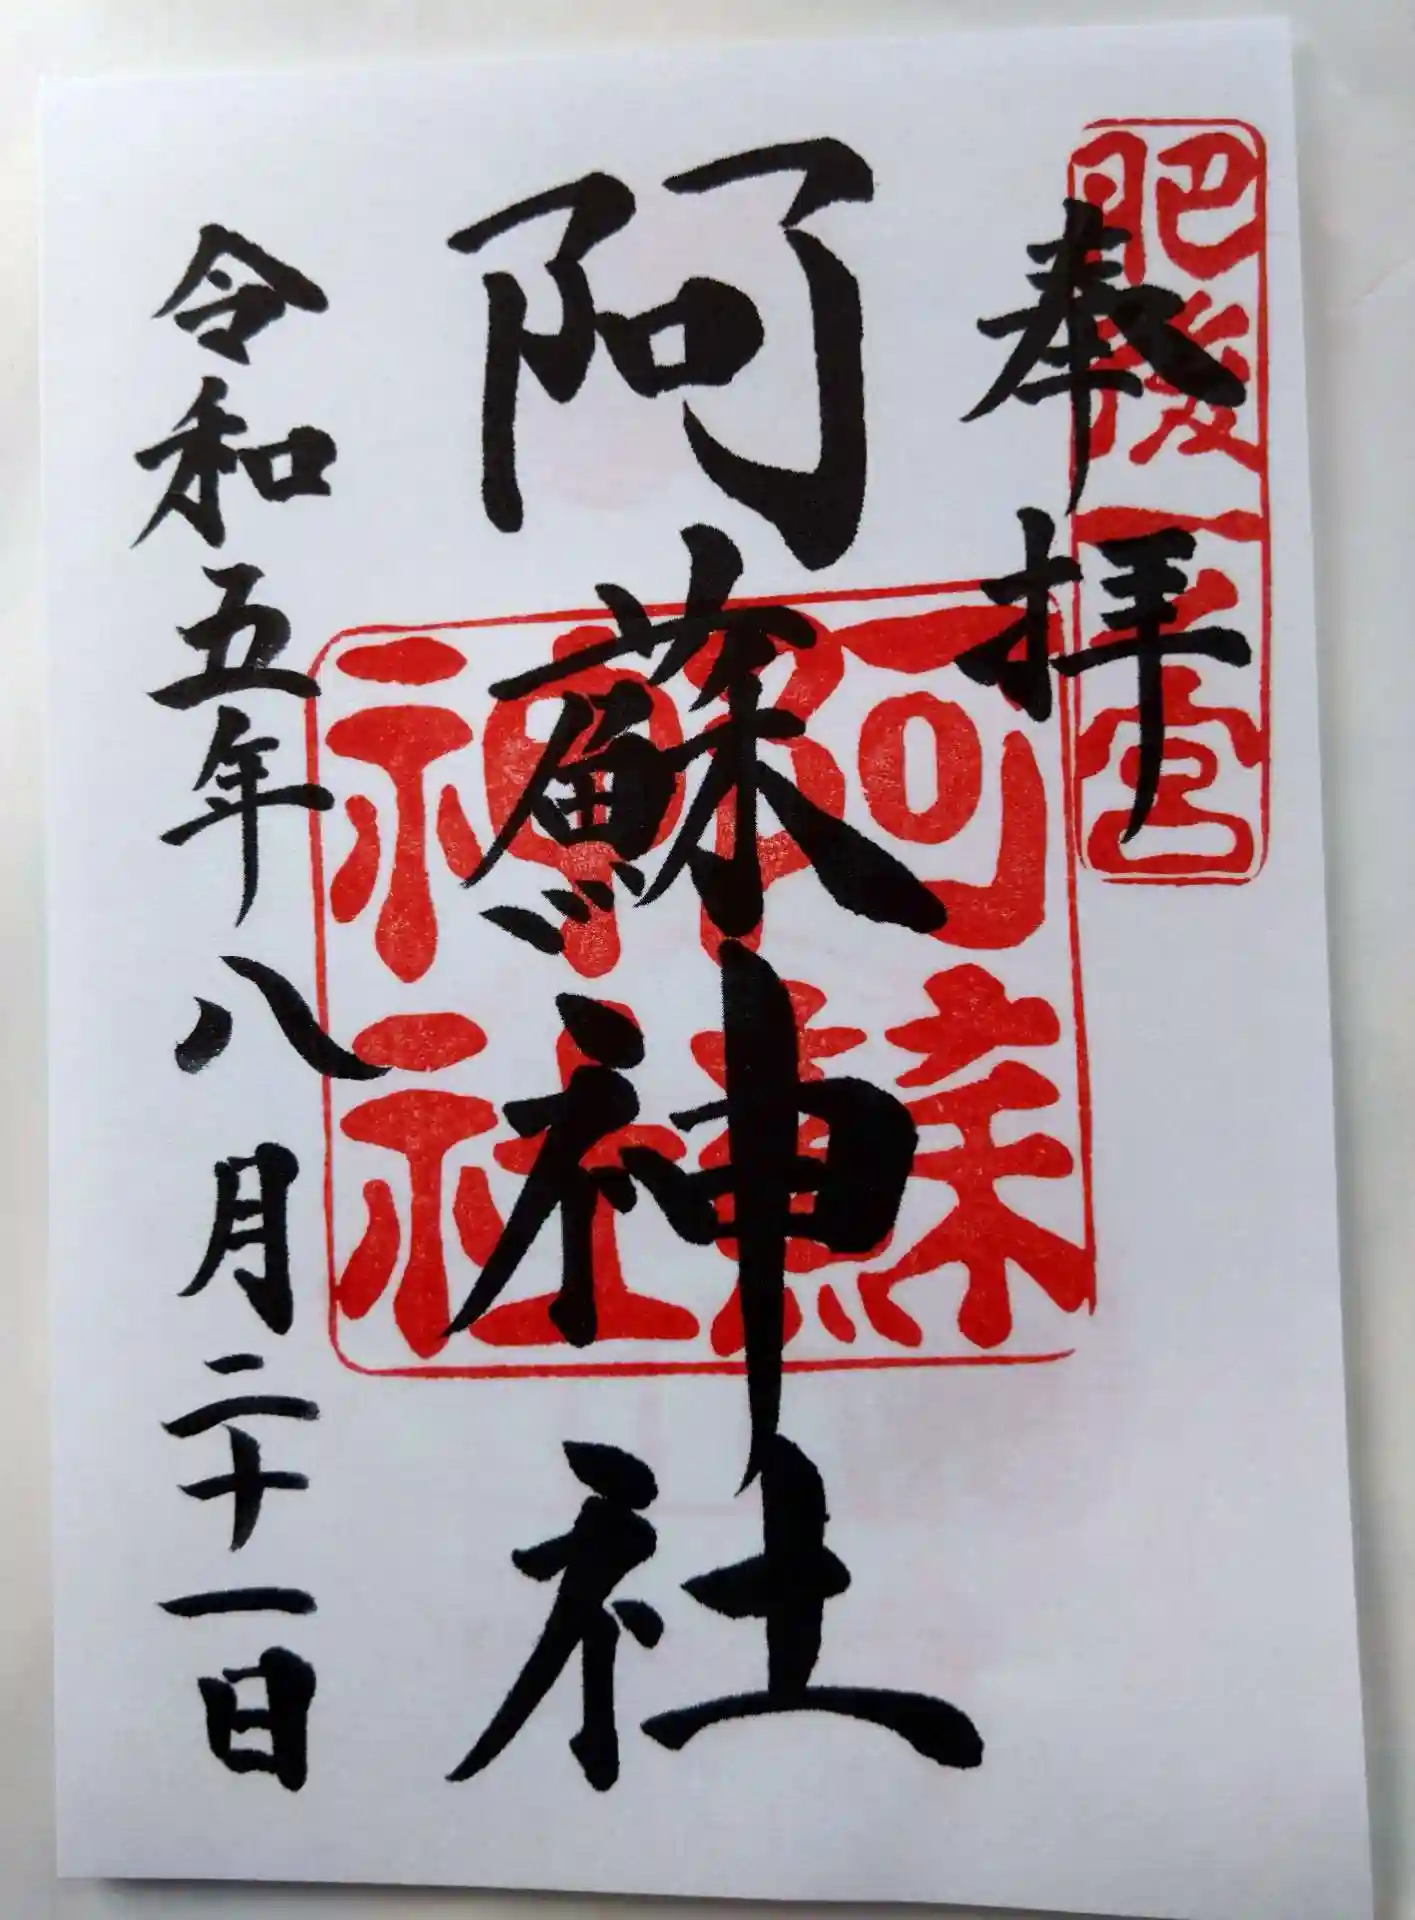 肥後一宮
奉拝
阿蘇神社
阿蘇神社
令和五年八月二十一日